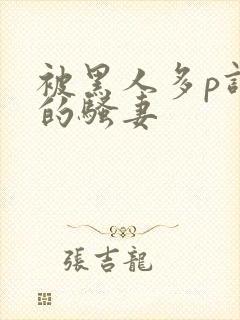 被黑人多p
的騷妻
張吉龍